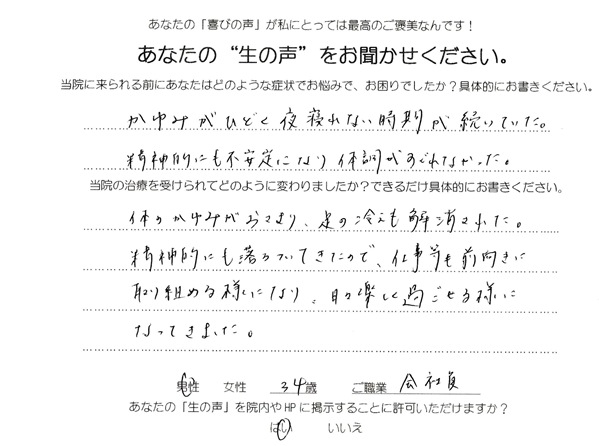 あなたの「喜びの声」が私にとっては最高のご褒美なんです！
あなたの “生の声” をお聞かせください。
当院に来られる前にあなたはどのような症状でお悩みで、お困りでしたか？具体的にお書きください。
かゆみがひどく夜寝れない時期が続いていた。
精神的にも不安定になり体調がすぐれなかった。
当院の治療を受けられてどのように変わりましたか？できるだけ具体的にお書きください。
体のかゆみがおさまり、足の冷えも解消された。
精神的にも落ちついてきたので、仕事等も前向きに
取り組める様になり、日々楽しく過ごせる様に
なってきました。
男性 女性 34歳 ご職業 会社員
あなたの「生の声」を院内やHPに掲示することに許可いただけますか？
はい いいえ